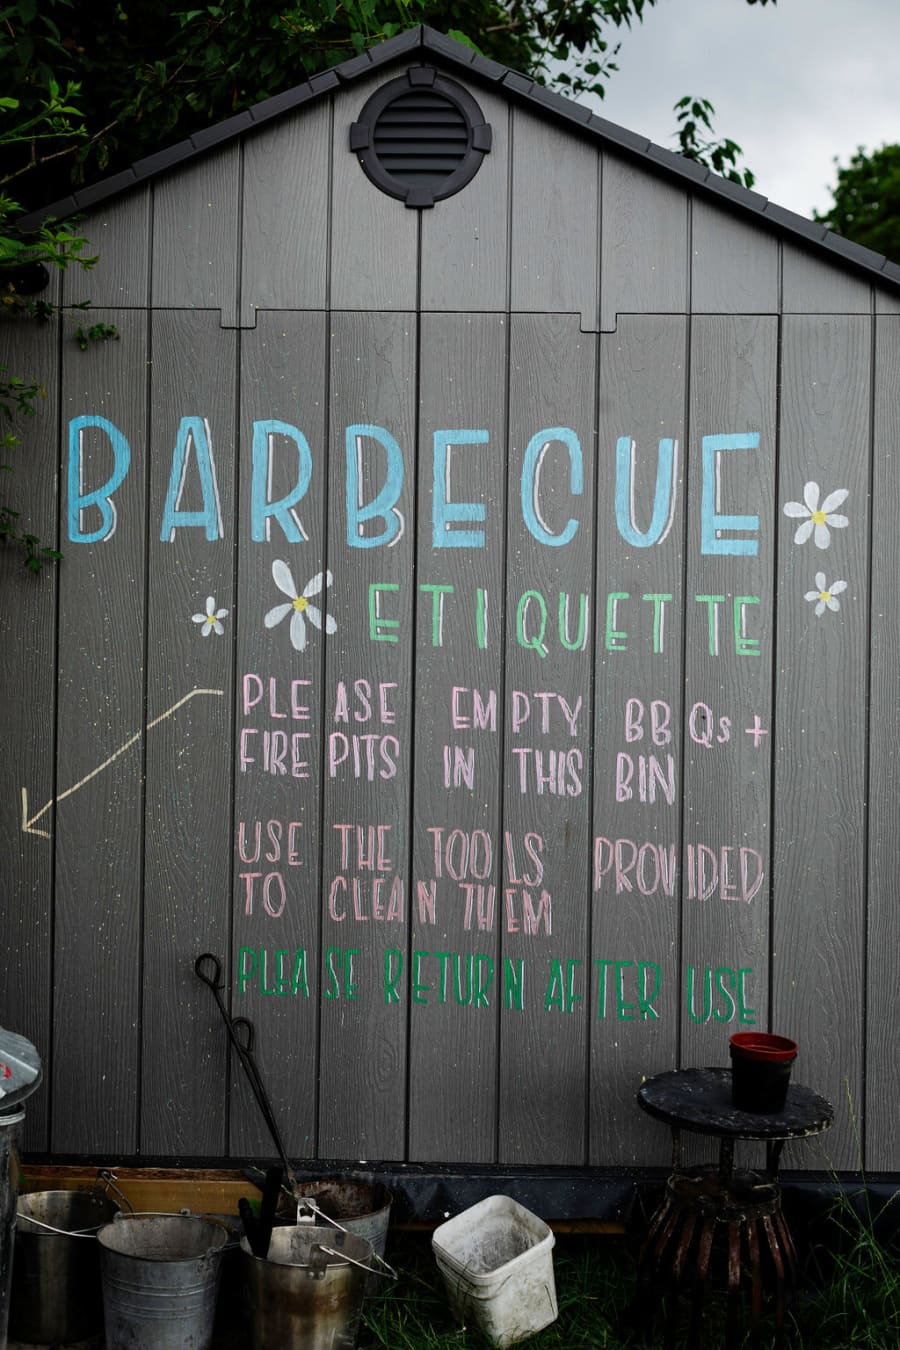 BARBECUE
ETIQUETTE
PLEASE EMPTY BBQs +
FIRE PITS IN THIS BIN
USE THE TOOLS PROVIDED
TO CLEAN THEM
PLEASE RETURN AFTER USE